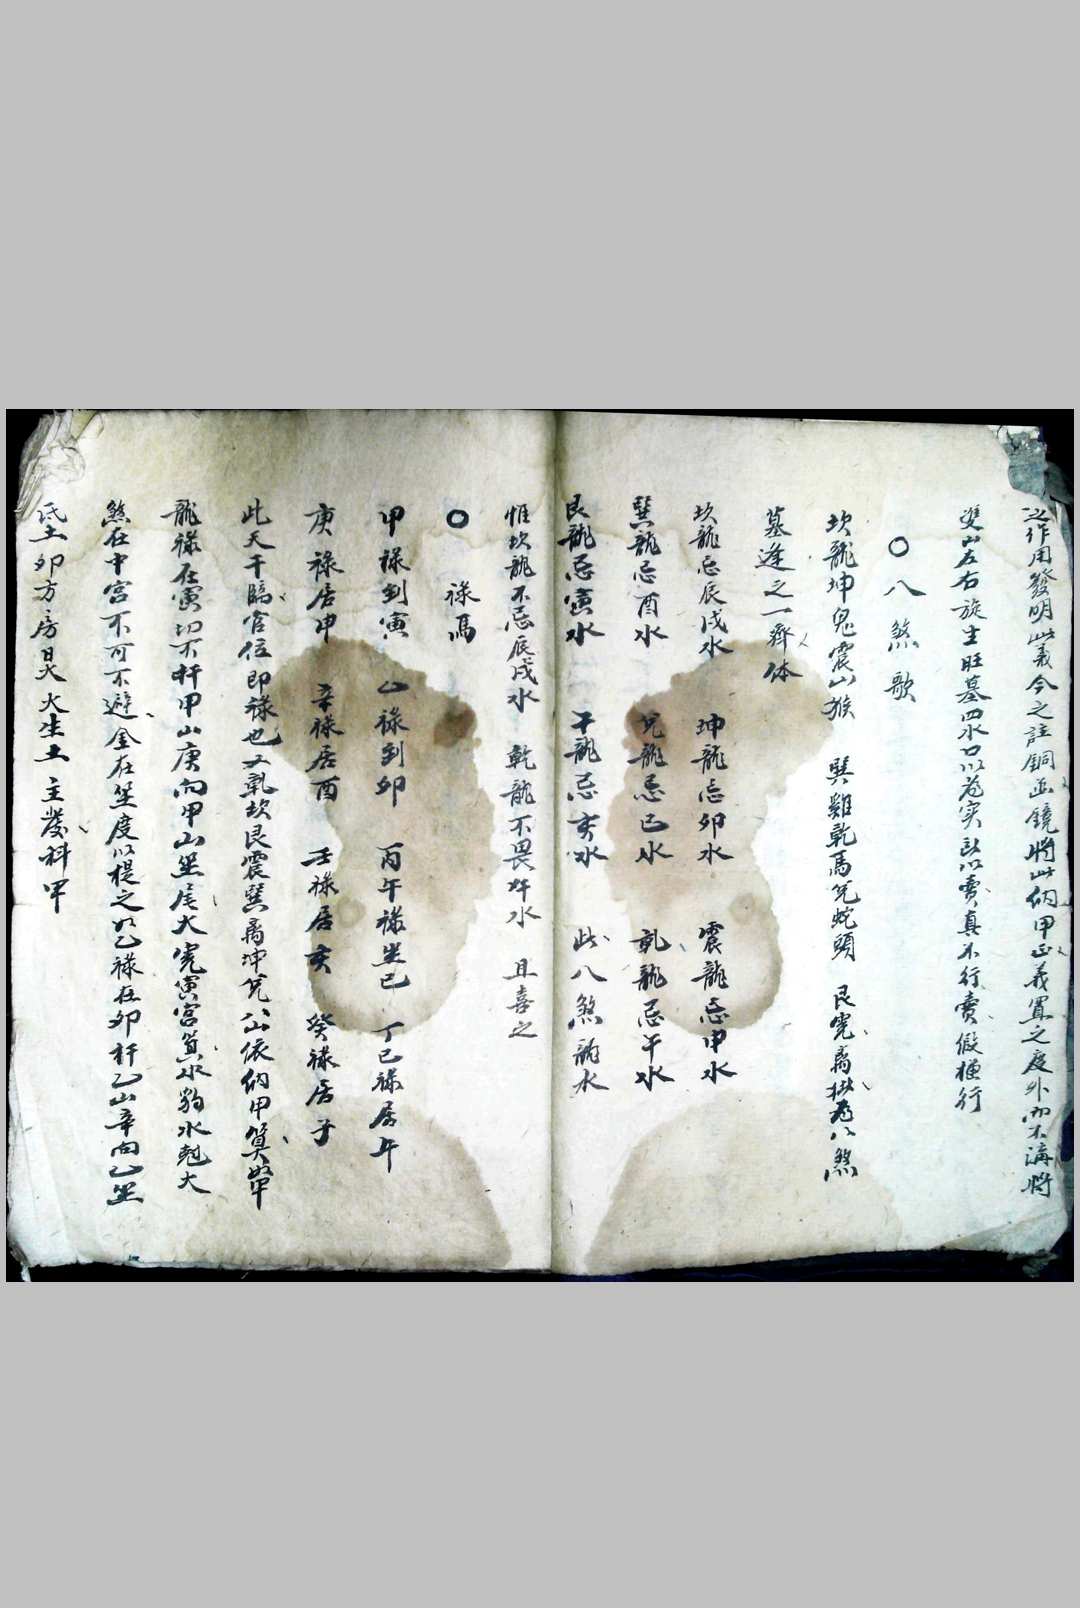 之作用發明此義今之註銅函鏡將此納甲正義置之度外而不講將
雙山左右旋生旺墓四水口以為实訣以賣真不行賣假橫行
○八煞歌
坎龍坤兔震山猴 巽雞乾馬兌蛇頭 艮虎离猪為八煞
墓逢之一齊休
坎龍忌辰戌水 坤龍忌卯水 震龍忌申水
巽龍忌酉水 兌龍忌巳水 乾龍忌午水
艮龍忌寅水 龍忌亥水 此八煞水
惟坎龍不忌辰戌水 乾龍不畏午水 且喜之
○祿馬
甲祿到寅 乙祿到卯 丙午祿坐巳 丁巳祿居午
庚祿居申 辛祿居酉 壬祿居亥 癸祿居子
此天干臨官位即祿也又乾坎艮震巽离坤兌八山依納甲算如甲
龍祿在寅切不扦甲山庚向甲山坐尾火虎寅宮箕水豹水尅火
煞在中宮不可不避金在坐度以提之如乙祿在卯扦乙山辛向乙坐
氐土卯方房日火生土主發科甲